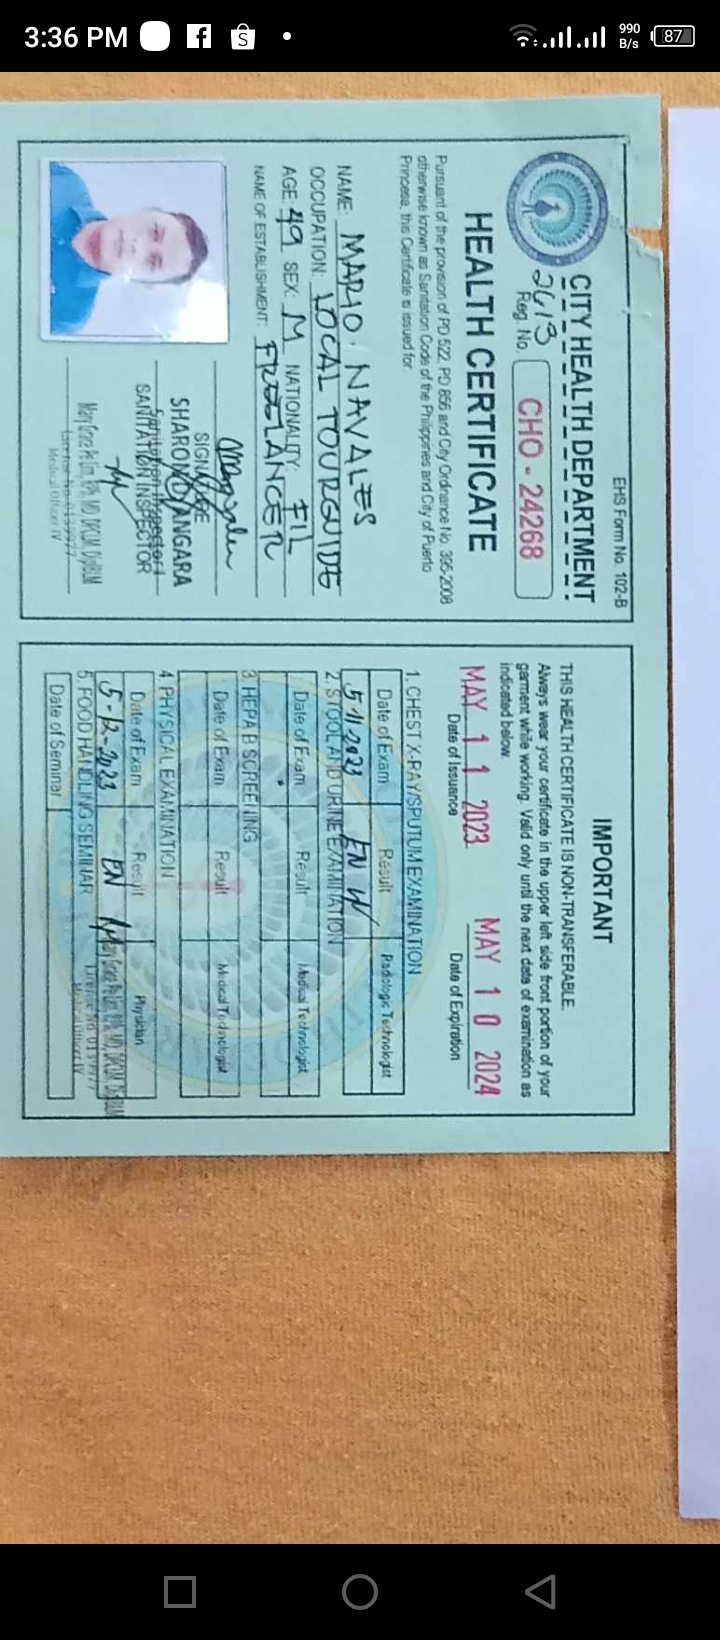 3:36 PM
990 B/s
87
EHS Form No. 102-B
CITY HEALTH DEPARTMENT
2613
Reg. No. CHO - 24268
HEALTH CERTIFICATE
Pursuant of the provision of PD 522, PD 856 and City Ordinance No. 395-2008
otherwise known as Sanitation Code of the Philippines and City of Puerto
Princesa, this Certificate is issued for
NAME: MARIO NAVALES
OCCUPATION: LOCAL TOURGUIDE
AGE: 49 SEX: M NATIONALITY: FIL
NAME OF ESTABLISHMENT: FREELANCER
SIGNATURE
SHARON D. YANGARA
Sanitation Inspector I
SANITATION INSPECTOR
Medical Officer IV
IMPORTANT
THIS HEALTH CERTIFICATE IS NON-TRANSFERABLE.
Always wear your certificate in the upper left side front portion of your
garment while working. Valid only until the next date of examination as
indicated below.
MAY 1 1 2023 MAY 1 0 2024
Date of Issuance Date of Expiration
1. CHEST X-RAY/SPUTUM EXAMINATION
Date of Exam Result Radiologic Technologist
5-11-2023 EN
2. STOOL AND URINE EXAMINATION
Date of Exam Result Medical Technologist
3. HEPA B SCREENING
Date of Exam Result Medical Technologist
4. PHYSICAL EXAMINATION
Date of Exam Result Physician
5-12-2023 EN
Medical Officer IV
5. FOOD HANDLING SEMINAR
Date of Seminar